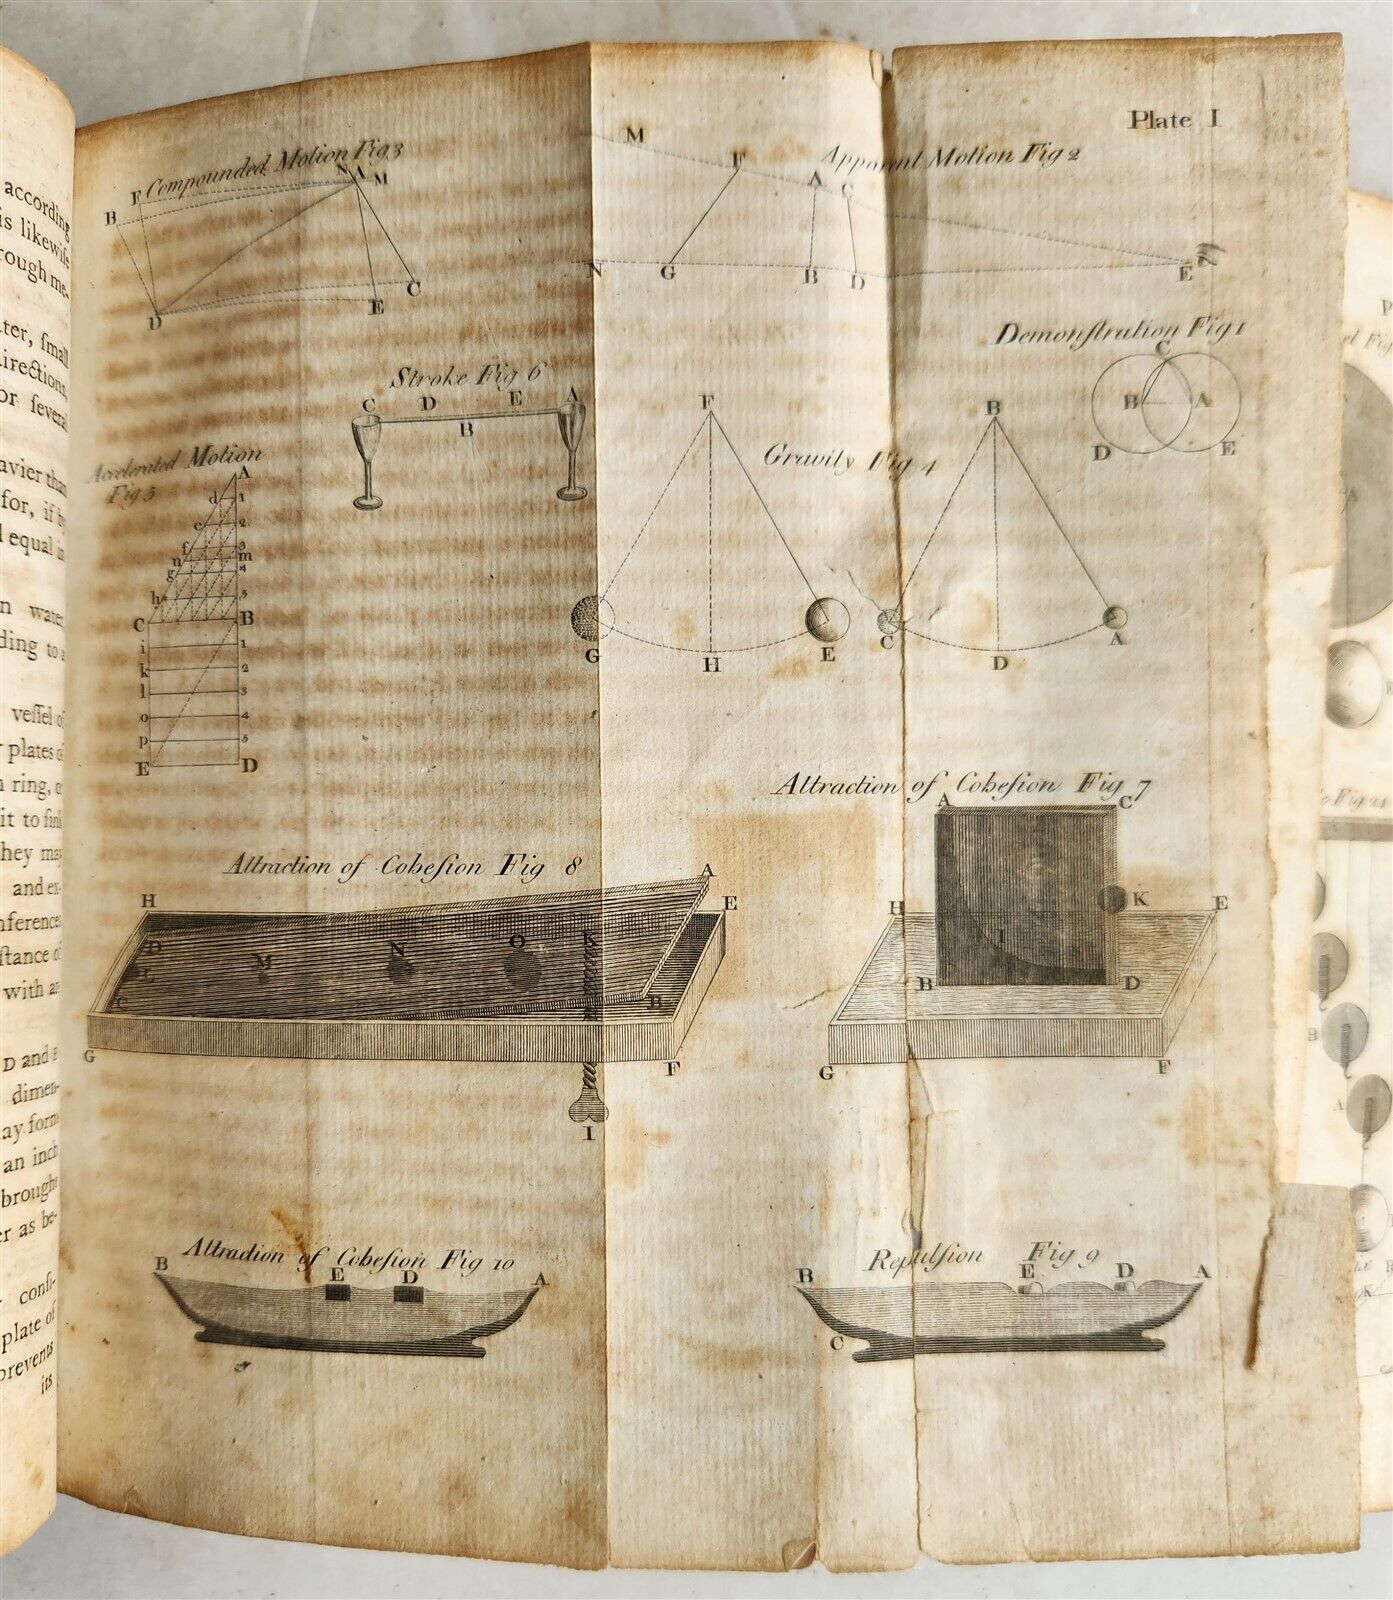 according
is likewiſe
rough me-
ter, ſmall
directions,
or ſeveral
avier than
for, if by
equal in
n water
ding to a
veſſel of
plates of
ring, or
it to ſink
they may
and ex-
nference
ſtance of
with an
D and E
dimen-
ay form
an inch
brought
er as be-
conſi-
plate of
prevents
its
Plate I
Compounded Motion Fig 3
B F N A M
D E C
Apparent Motion Fig 2
M F A C
N G B D E
Demonſtration Fig 1
C
B A
D E
Stroke Fig 6
C D E A
B
Accelerated Motion
Fig 5
A
d 1
e 2
f 3
n m
g 4
h 5
C B
i 1
k 2
l 3
o 4
p 5
E D
Gravity Fig 4
F B
G H E C D A
Attraction of Coheſion Fig 7
A C
H K E
I
B D
G F
Attraction of Coheſion Fig 8
H A E
D M N O K
L C B
G F
I
Attraction of Coheſion Fig 10
B E D A
Repulſion Fig 9
B E D A
C